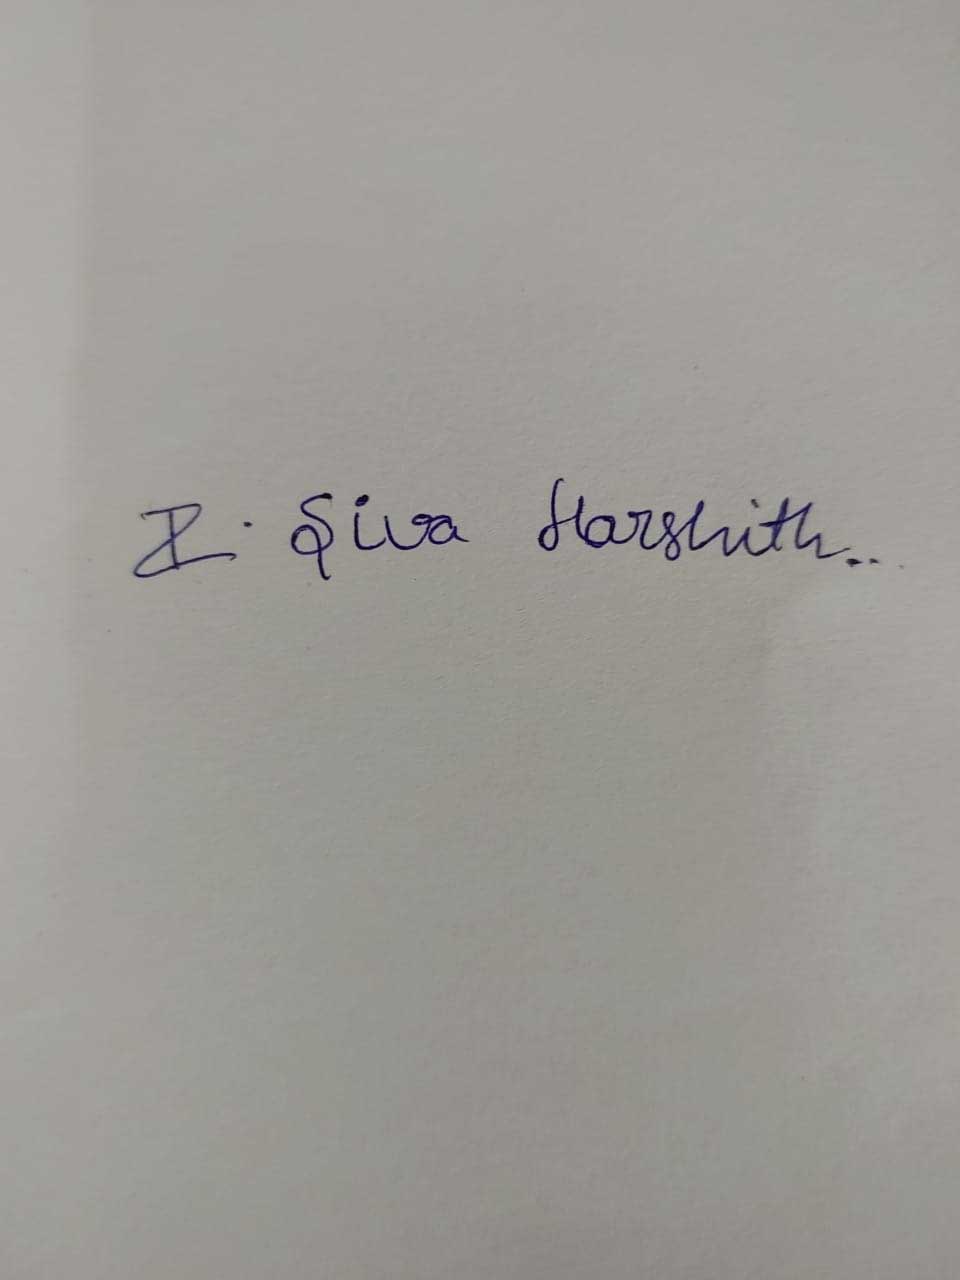 I. Siva Harshith..